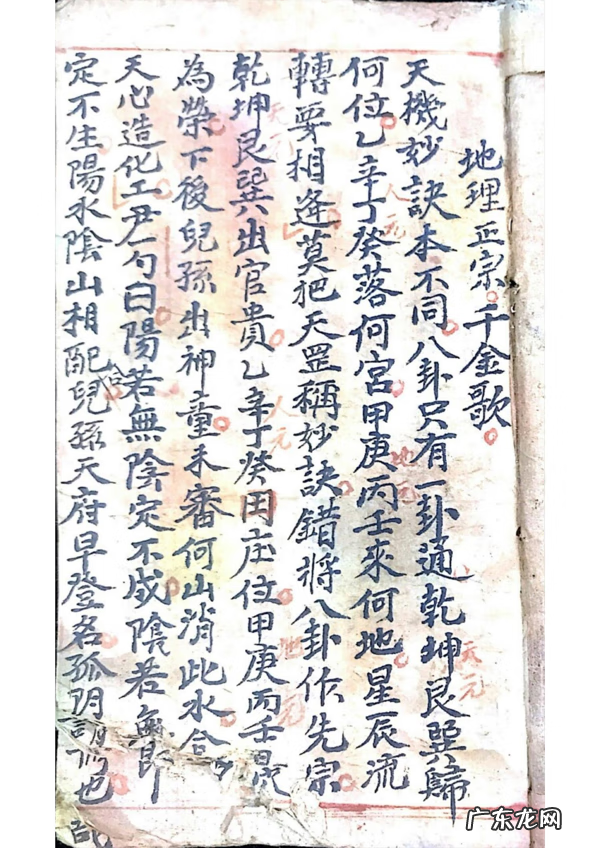 地理正宗千金歌
天機妙訣本不同八卦只有一卦通乾坤艮巽歸
天元
何位乙辛丁癸落何宮甲庚丙壬來何地星辰流
人元
地元
轉要相逢莫把天罡稱妙訣錯將八卦作先宗
乾坤艮巽出官貴乙辛丁癸田庄位甲庚丙壬
人元
地元
為榮下後兒孫出神童未審何山消此水合
天心造化工
勺白陽若無陰定不成陰若無
定不生陽水陰山相配兒孫天府早登名孤阴
也
广东龙网